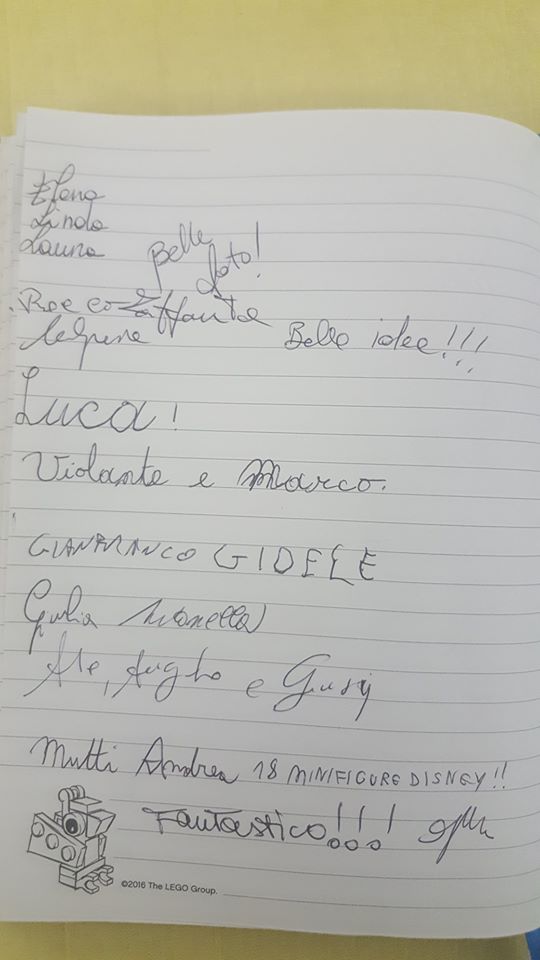 Elena
Linda
Laura
Belle foto!
Belle idee!!!
Luca!
Violante e Marco.
GIANFRANCO GIDELE
Giulia
Ale, e Giusy
Mutti Andrea 18 MINIFIGURE DISNEY!!
Fantastico!!!
©2016 The LEGO Group.